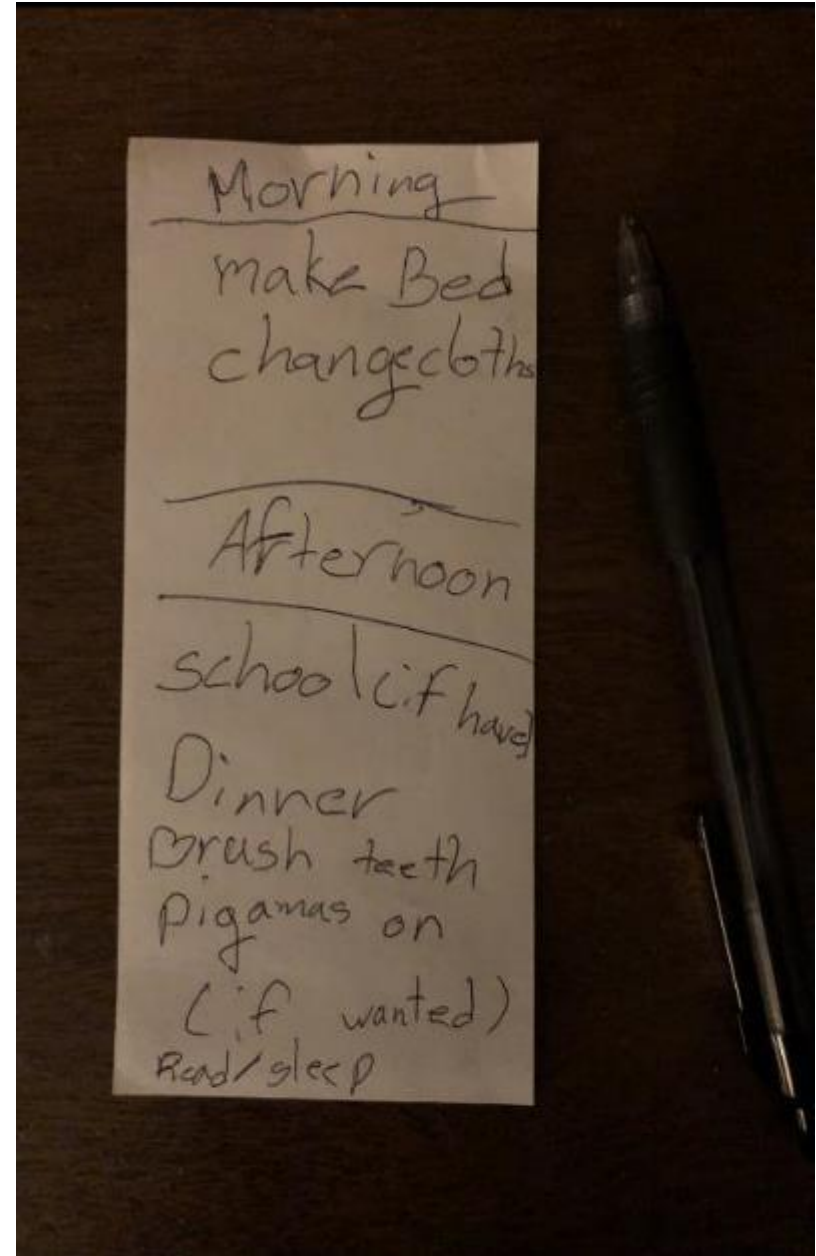 Morning
make Bed
change cloths
Afternoon
school (if have)
Dinner
Brush teeth
pigamas on
(if wanted)
Read/sleep